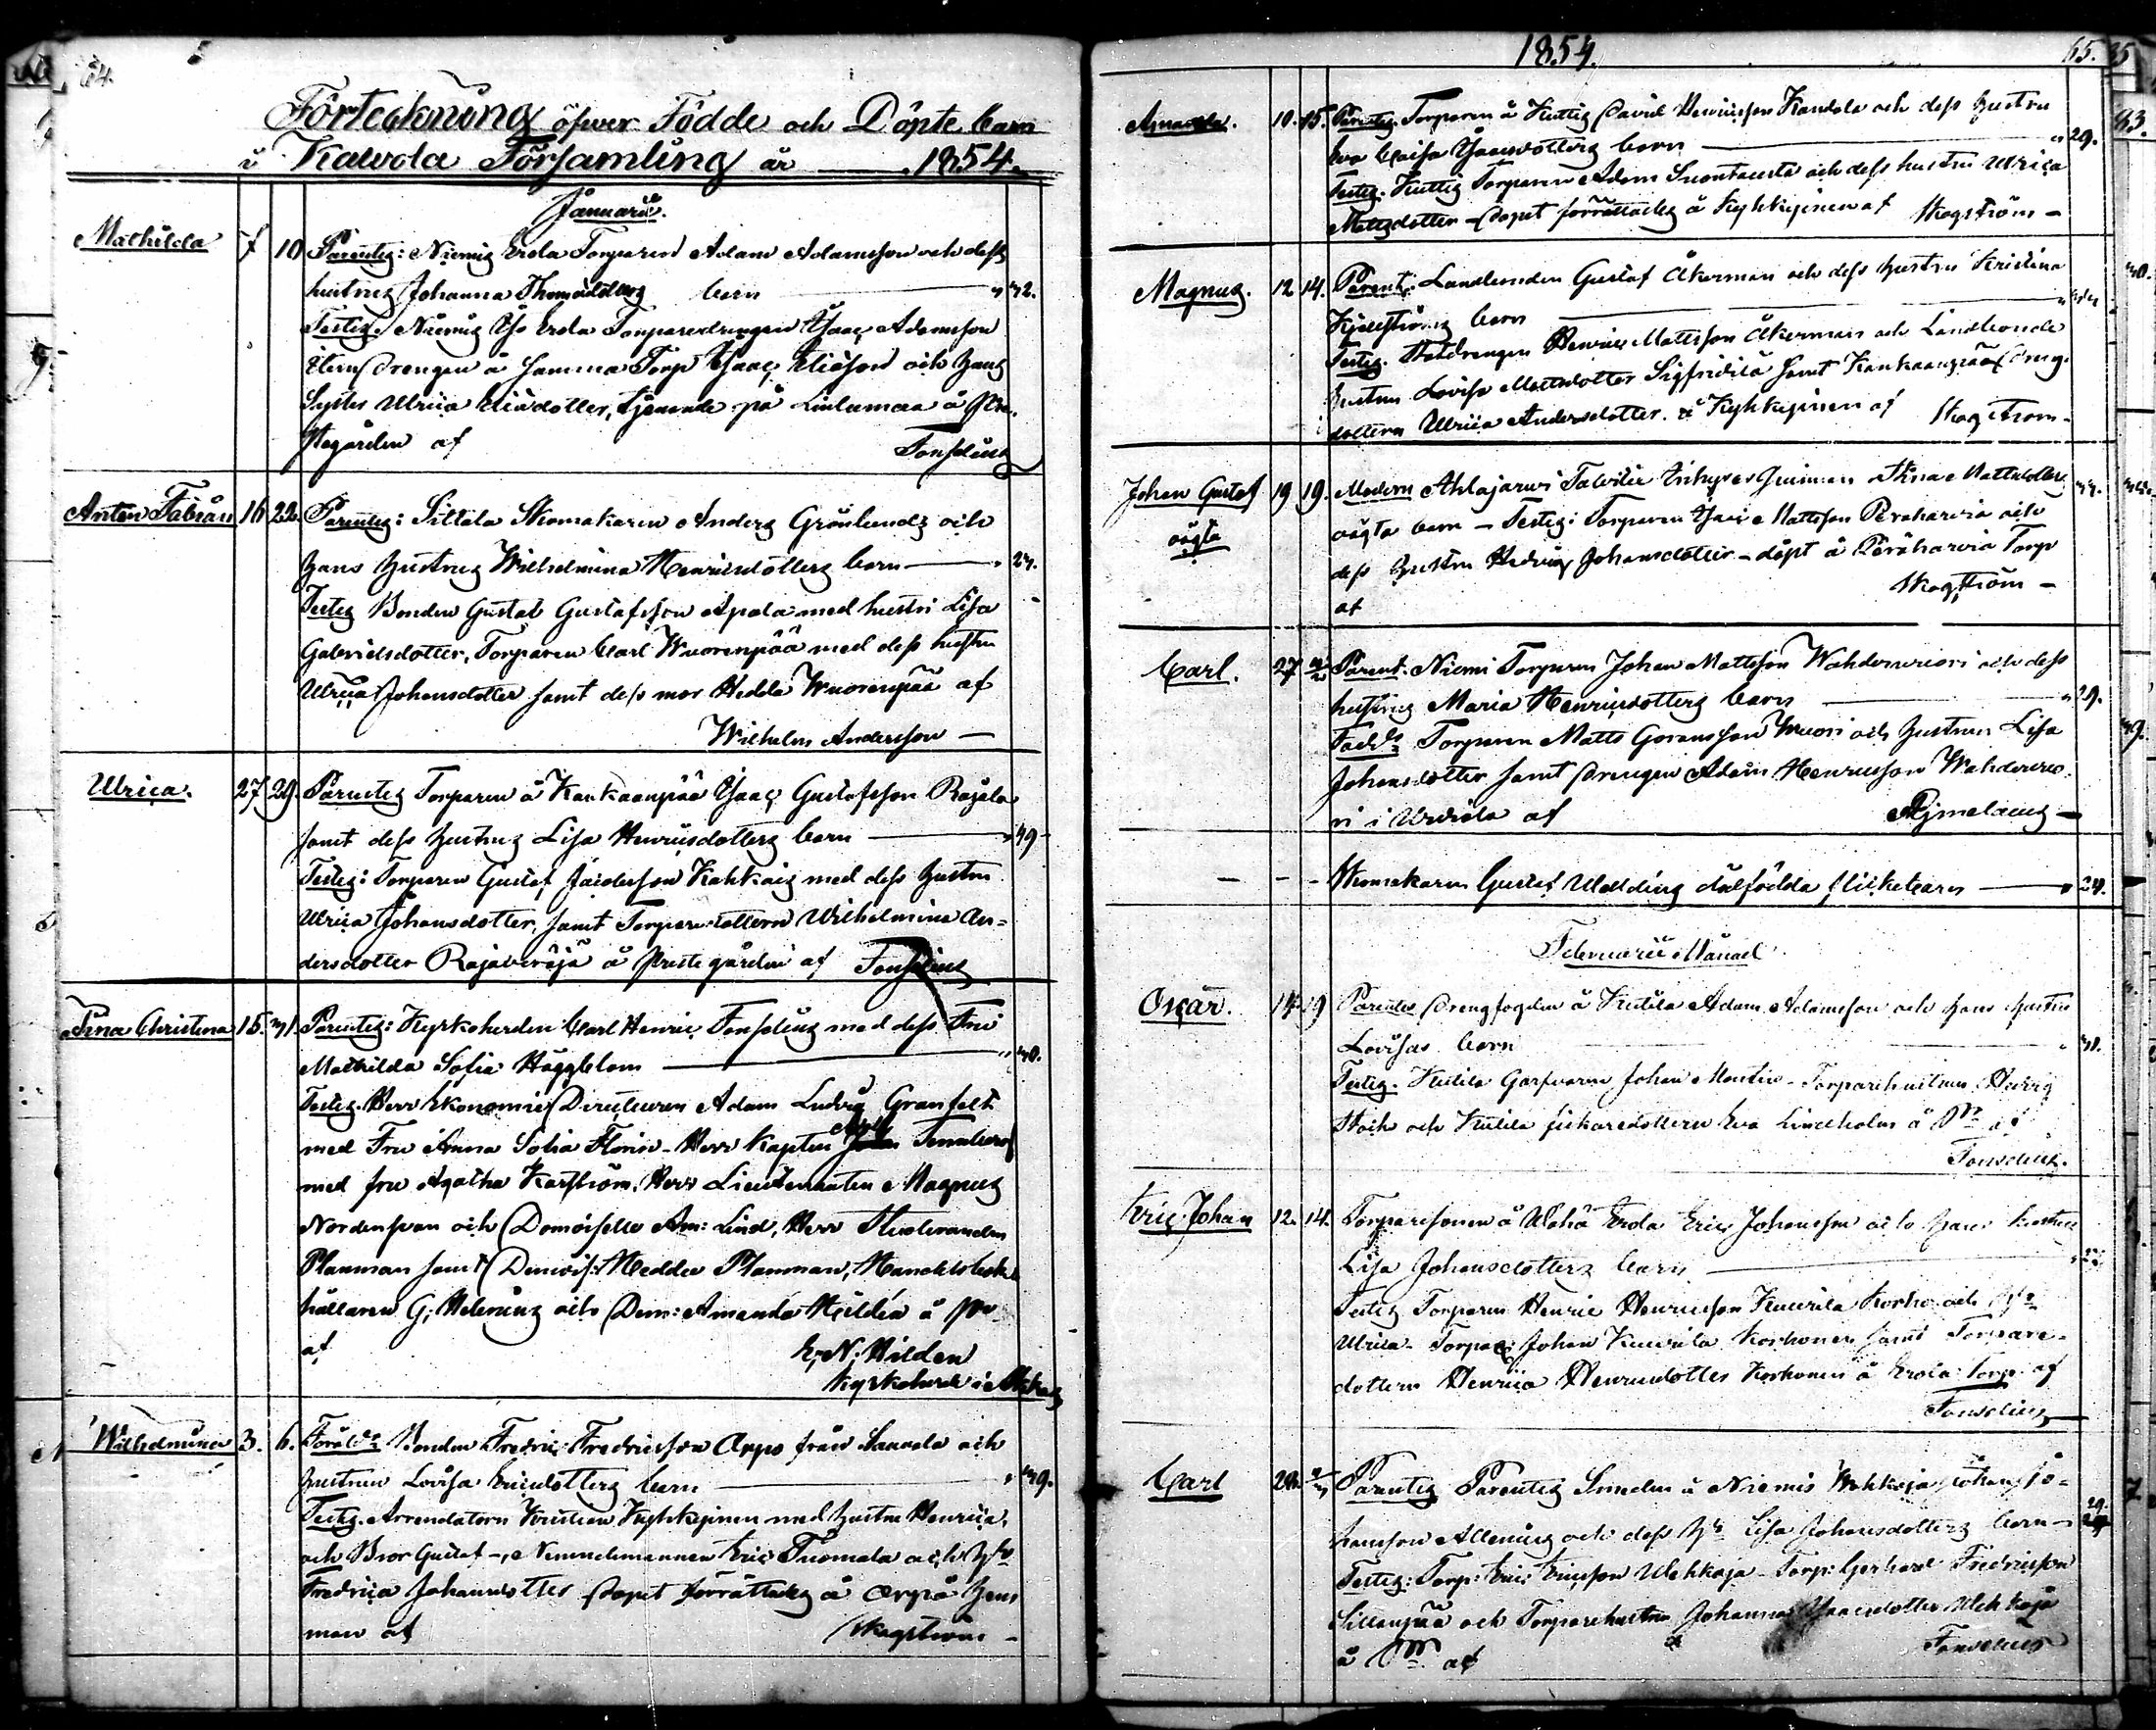 64.
Förteckning öfwer Födde och Döpte barn
i Kalvola Församling år 1854.
Januarii.
Mathilda 7 10 Parentes: Niemis Erola Torparen Adam Adamsson och dess
hustrus Johanna Thomasdotters barn " 32.
Testes. Niemis Erola Torparedrengen Isaac Adamsson
Drengen å samma Torp Isaac Eliasson och hans
Syster Ulrica Eliædotter, tjenande på Liulumaa å Pre-
stegården af Fonselius
Anton Fabian 16 22. Parentes: Siltala Skomakaren Anders Grönlunds och
hans hustrus Wilhelmina Henricsdotters barn " 27.
Testes Bonden Gustaf Gustafsson Apala med hustru Lisa
Gabrielsdotter, Torparen Carl Wuorenpää med dess hustru
Ulrica Johansdotter samt dess mor Hedda Wuorenpää af
Wilhelm Andersson
Ulrica. 27 29. Parentes Torparen å Kankaanpää Isaac Gustafsson Rajala
samt dess hustrus Lisa Henricsdotters barn " 49
Testes: Torparen Gustaf Kahkais med dess hustru
Ulrica Johansdotter, samt Torparedottern Wilhelmina An-
dersdotter Rajaberäjä å Prestegården af Fonselius
Sina Christina 15. 31. Parentes: Kyrkoherden Carl Henric Fonselius med dess Fru
Mathilda Sofia Häggblom " 30.
Testes. Herr Ekonomie Directeuren Adam Ludvig Granfelt
med Fru Anna Sofia Florin - Herr Kapten Adolf
med fru Agatha Karström, Herr Lieutenanten Magnus
Nordenswan och Demoiselle Am: Lind, Herr Studeranden
Planman samt Demois: Hedda Planman,
hållaren G: Helenius och Dem: Amanda Hildén å Pr
af E. N. Hilden
Kyrkoherde i
Wilhelmina 3. 6. Föräldr Bonden Fredric Fredricsson Orpo från Sauvala och
hustrun Lovisa Ericsdotters barn " 39.
Testes. Arrendatorn Christian Kyhkyinen med hustru Henrica,
och Bror Gustaf - Nemndemannen Eric Tuomala och hu
Fredrica Johansdotter Dopet förrättades å Orpo hem
man af Skogström
1854. 65.
Amanda. 10. 15. Parentes. Torparen å Kuttis David Henricsson Kandola och dess hustru
Eva Caisa Isaacsdotters barn " 29.
Testes. Kuttis Torparen Adam Suontausta och dess hustru Ulrica
Mattsdotter - Dopet förrättades å Kyhkyinen af Skogström
Magnus. 12 14. Parent: Landbonden Gustaf Åkerman och dess hustru Kristina
barn
Testes. Henric Mattsson Åkerman och Landbonde
hustrun Lovisa Mattsdotter Sigfridilä samt Kankaanpää Dreng-
dottern Ulrica Andersdotter. å Kyhkyinen af Skogström
Johan Gustaf 19 19. Modren Ahlajarwi Mattsdotters
oägta
oägta barn - Testes: Torparen Isaac Mattsson Peraharvia och
dess hustru Hedvig Johansdotter - döpt å Peräharvia Torp
af Skogström
Carl. 27 Parent. Niemi Torparen Johan Mattsson Wahderwuori och dess
hustrus Maria Henricsdotters barn " 29.
Fadd. Torparen Matts Göransson Wuori och hustrun Lisa
Johansdotter samt Drengen Adam Henricsson Wahderwuo-
ri i Urvilla af Pijmelaeus
Skomakaren Gustaf Wedding dödfödda flickebarn " 24.
Februarii Månad
Oscar. 17. 19 Parentes Drengfogden å Kutila Adam Adamsson och hans hustru
Lovisas barn " 31.
Testes. Kutila Garfvaren Johan Mostin - Torparehustrun Hedvig
Stock och Kutila fiskaredottern Eva Lindholm å P af
Fonselius.
Eric Johan 12. 14. Torparesonen å Uoha Erola Eric Johansson och hans hustru
Lisa Johansdotters barn
Testes Torparen Henric Henricsson Kuurila Korho och
Ulrica - Torpar: Johan Kuurila Korhonen samt Torpare-
dottern Henrica Henricsdotter Korhonen å Erola Torp af
Fonselius
Carl 28. Parentes Parentes Smeden å Niemis Wehkoja Johan Jo-
hansson Allenius och dess Hu Lisa Johansdotters barn 29.
Testes: Torp: Eric Ericsson Wehkoja - Torp: Gerhard Fredricsson
Sillanpää och Torparehustrun Johanna Isaacsdotter Wehkoja
å P af Fonselius